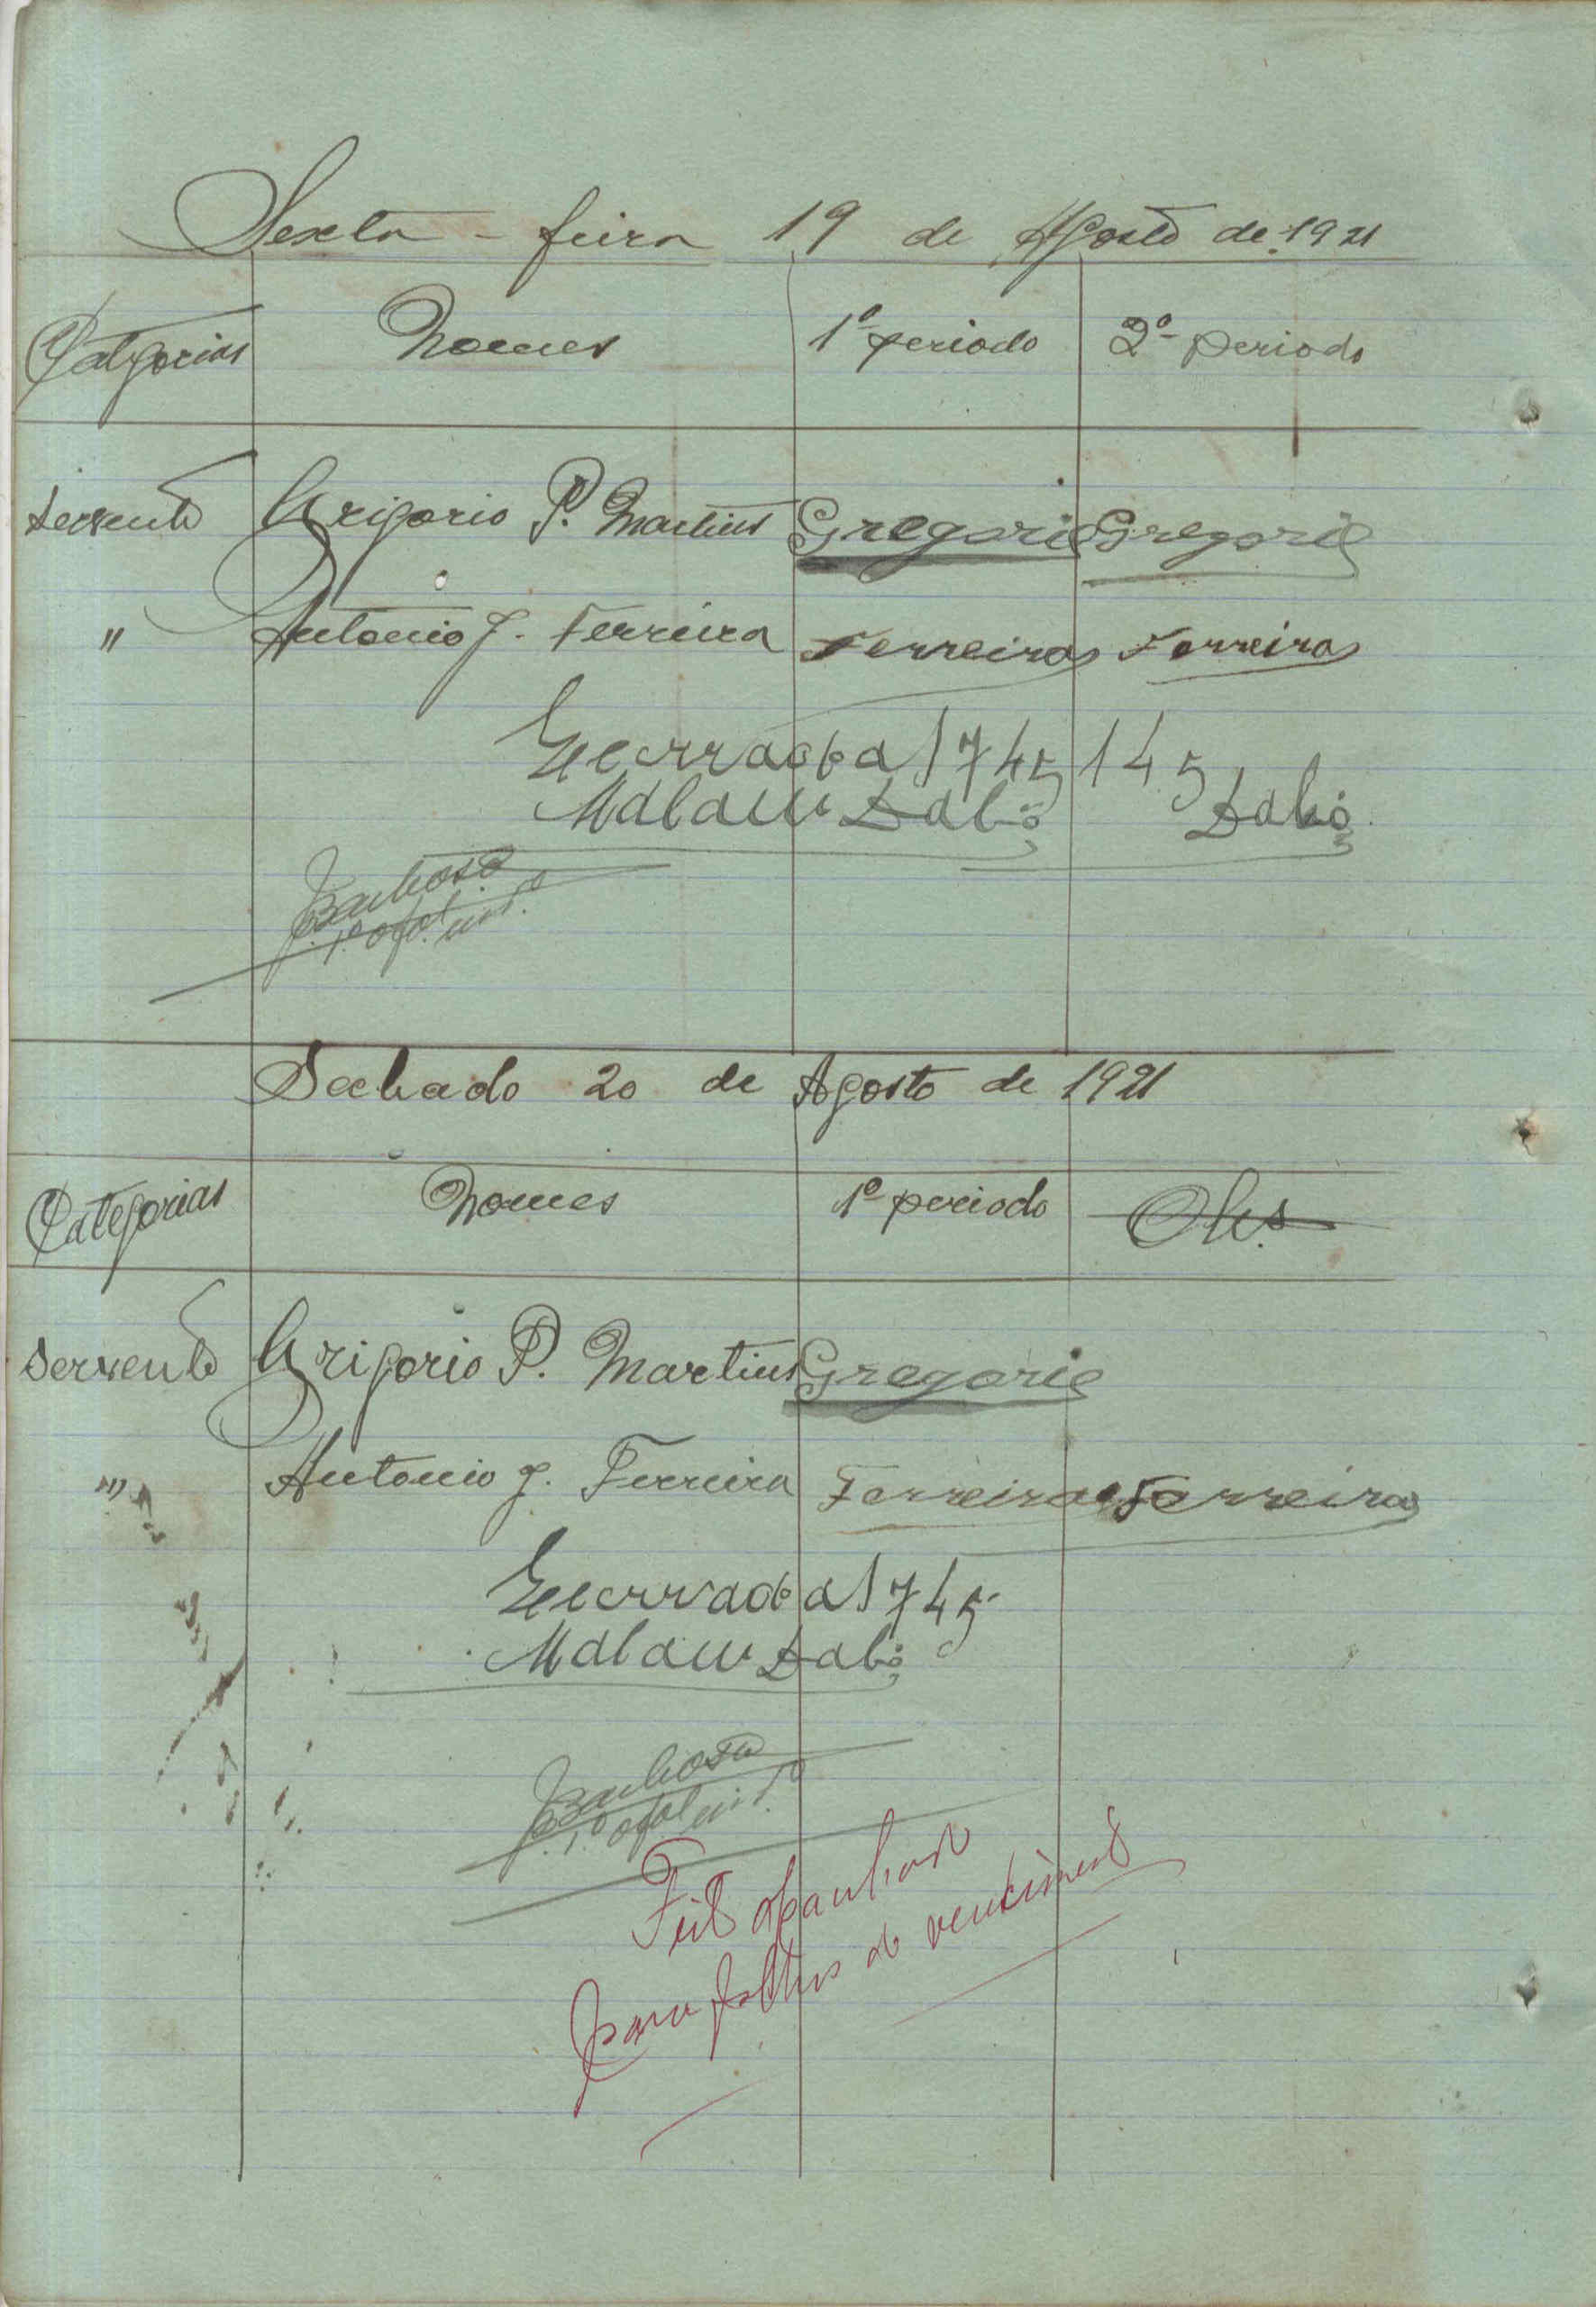 Sexta-feira 19 de Agosto de 1921
Categorias Nomes 1º periodo 2º periodo
Servente Grigorio P. Martins Gregorio Gregorio
" Antonio J. Ferreira Ferreira Ferreira
Encerrado a 1745 145
Malam Dabó Dabó
Barbosa
1º ofal. int.º
Sabado 20 de Agosto de 1921
Categorias Nomes 1º periodo Obs
Servente Grigorio P. Martins Gregorio
" Antonio J. Ferreira Ferreira Ferreira
Encerrado a 1745
Malam Dabó
Barbosa
1º ofal int.º
Feito
para folhas de vencimento